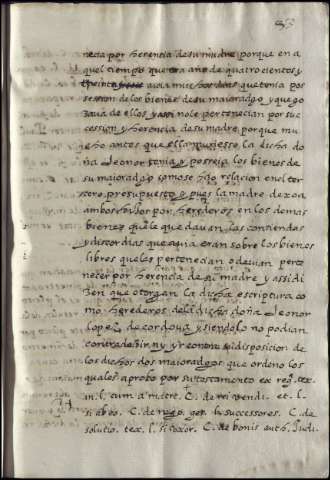 necia por herencia de su madre porque en a
quel tiempo que era año de quatrocientos y
treinta avia muchos dias que tenia pos
session de los bienes de su maioradgo y que go
zava de ellos y assi no le pertenecian por suc
cession y herencia de su madre porque mu
cho antes que ella muriesse la dicha do
ña Leonor tenia y posseia los bienes de
su maioradgo como se hizo relacion en el ter
cero presupuesto y pues la madre dexo a
ambos hijos por herederos en los demas
bienes que le quedavan las contiendas
y discordias que avia eran sobre los bienes
libres que les pertenecian o devian perte
necer por herencia de su madre y assi di
zen que otorgan la dicha escriptura co
mo herederos de la dicha doña Leonor
Lopez de cordova y siendolo no podian
contradecir ny yr contra la disposicion de
los dichos dos maioradgos que ordeno los
quales aprobo por su testamento ex reg. tex.
in. l. cum a matre. C. de rei vendi. et. l.
si
C. de
l. successores. C. de
solutio. tex. l. si uxor. C. de bonis auth. Judi.